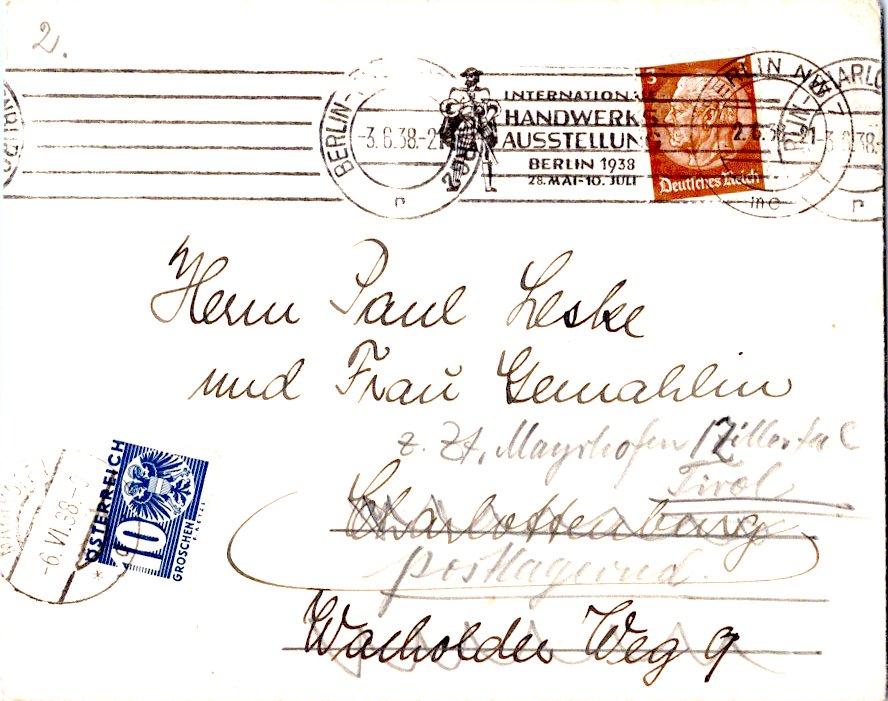 2.
BERLIN-
-3.6.38.-21
n
INTERNATIONALE
HANDWERKS
AUSSTELLUNG
BERLIN 1938
28. MAI-10. JULI
3
Deutsches Reich
BERLIN NW 7
2.6.38.-21
me
-3.6.38.-
n
Herrn Paul Leske
und Frau Gemahlin
z. Zt. Mayrhofen / Zillertal
Tirol
Charlottenburg
postlagernd.
Wacholder Weg 9
ÖSTERREICH
10
GROSCHEN
-6.VI.38-9